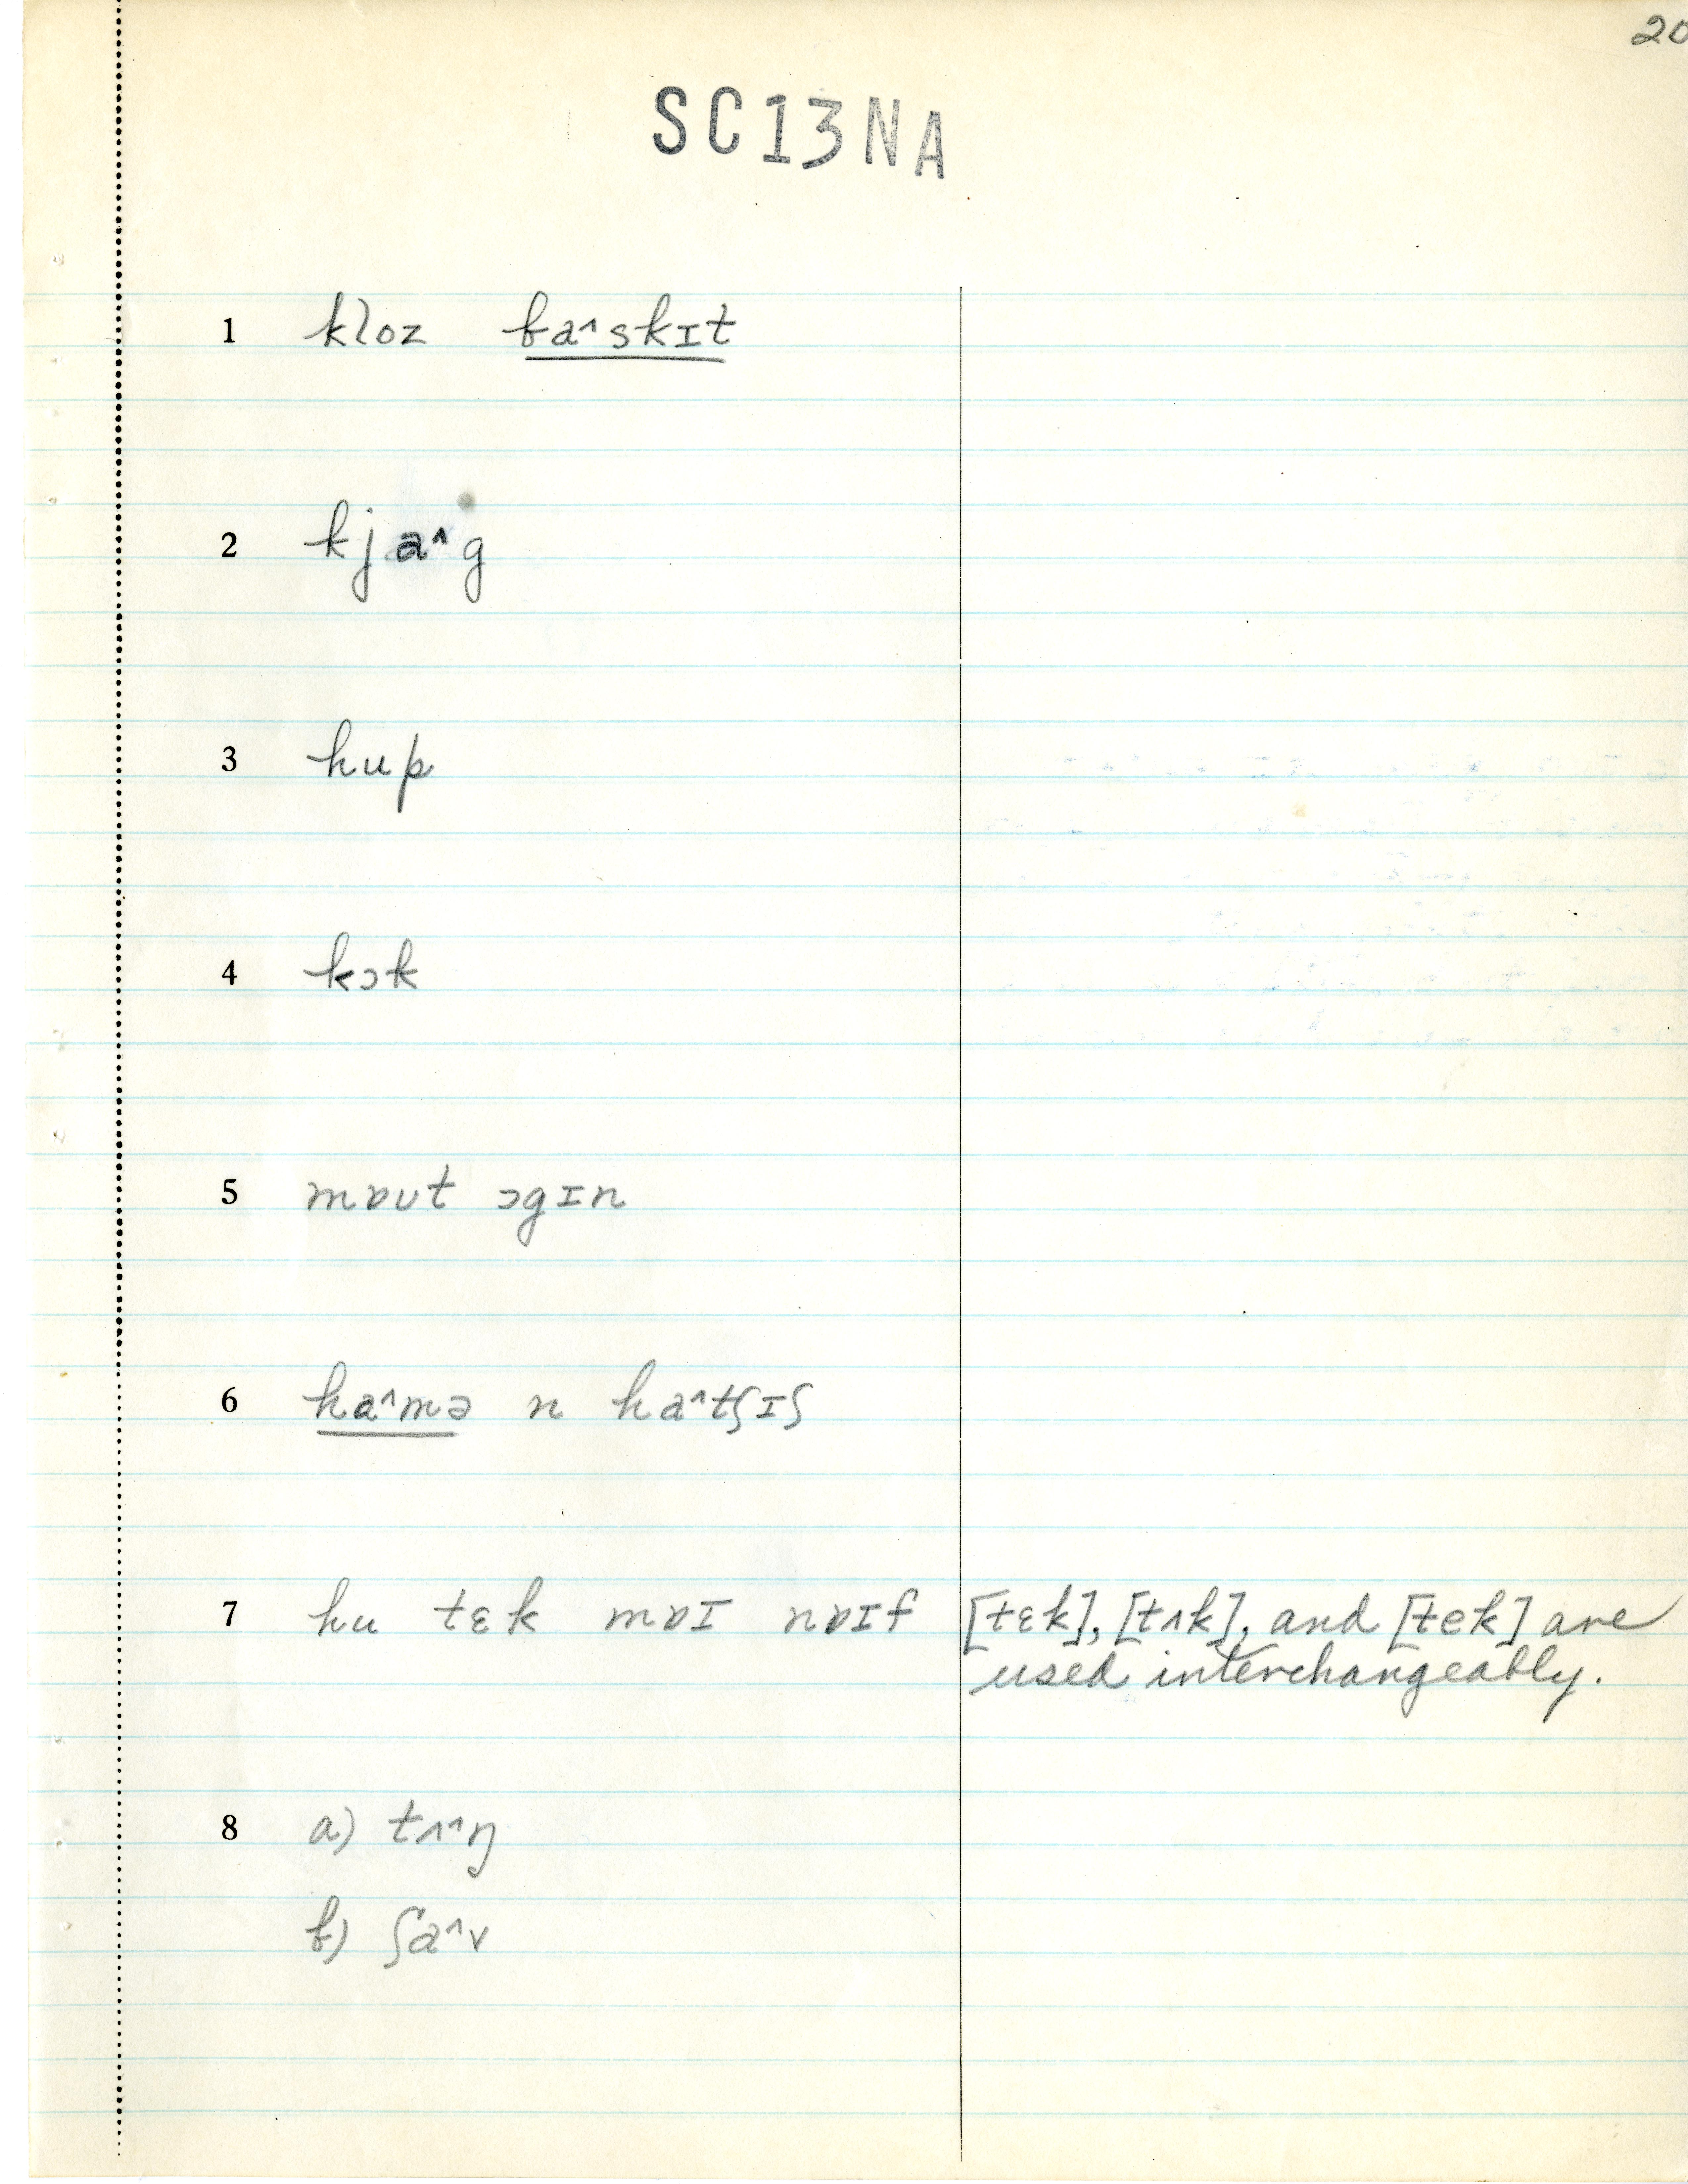 20
SC13NA
1 kloz ba^skɪt
2 kja^g
3 hup
4 kɔk
5 mɒʊt ɔgɪn
6 ha^mə n ha^tʃɪʃ
7 hu tɛk mɒɪ nɒɪf [tɛk], [tʌk], and [tek] are
used interchangeably.
8 a) tʌ^ŋ
b) ʃa^v